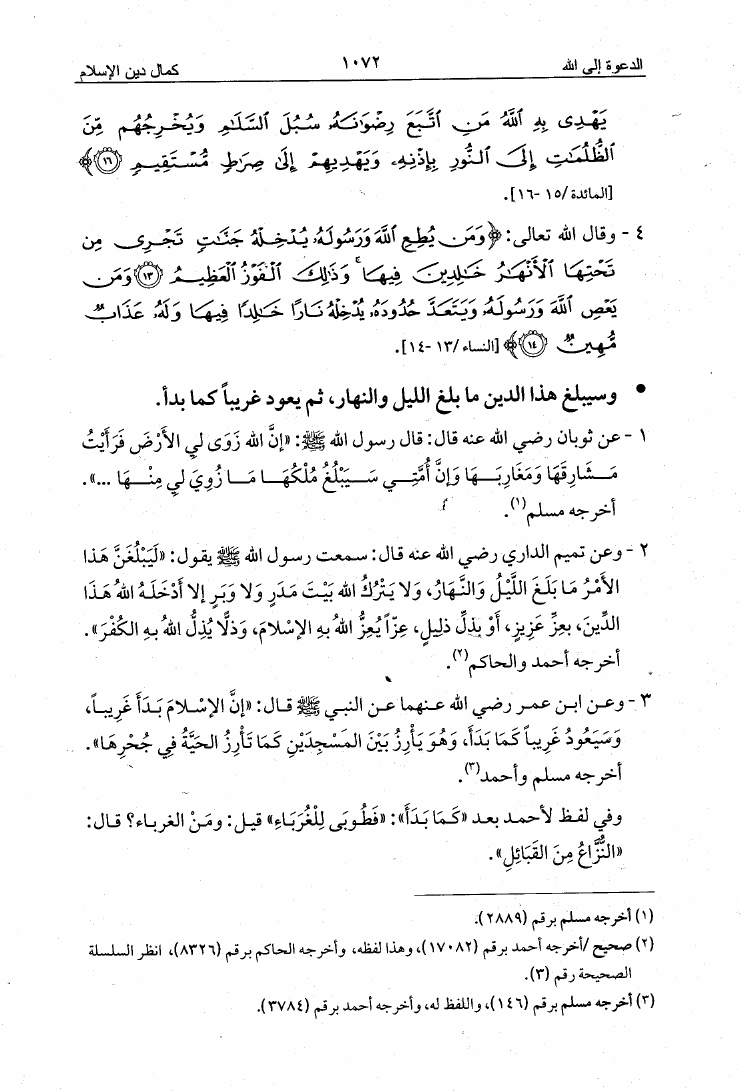 الدعوة إلى الله ١٠٧٢ كمال دين الإسلام
يَهْدِى بِهِ ٱللَّهُ مَنِ ٱتَّبَعَ رِضْوَانَهُۥ سُبُلَ ٱلسَّلَامِ وَيُخْرِجُهُم مِّنَ
ٱلظُّلُمَاتِ إِلَى ٱلنُّورِ بِإِذْنِهِۦ وَيَهْدِيهِمْ إِلَىٰ صِرَاطٍ مُّسْتَقِيمٍ ﴿١٦﴾
[المائدة/١٥-١٦].
٤ - وقال الله تعالى: ﴿وَمَن يُطِعِ ٱللَّهَ وَرَسُولَهُۥ يُدْخِلْهُ جَنَّاتٍ تَجْرِى مِن
تَحْتِهَا ٱلْأَنْهَارُ خَالِدِينَ فِيهَا ۚ وَذَالِكَ ٱلْفَوْزُ ٱلْعَظِيمُ ﴿١٣﴾ وَمَن
يَعْصِ ٱللَّهَ وَرَسُولَهُۥ وَيَتَعَدَّ حُدُودَهُۥ يُدْخِلْهُ نَارًا خَالِدًا فِيهَا وَلَهُۥ عَذَابٌ
مُّهِينٌ ﴿١٤﴾ [النساء/١٣-١٤].
• وسيبلغ هذا الدين ما بلغ الليل والنهار، ثم يعود غريباً كما بدأ.
١ - عن ثوبان رضي الله عنه قال: قال رسول الله ﷺ: «إنَّ الله زَوَى لي الأَرْضَ فَرَأَيْتُ
مَشَارِقَهَا وَمَغَارِبَهَا وَإنَّ أُمَّتِي سَيَبْلُغُ مُلْكُهَا مَا زُوِيَ لي مِنْهَا ...».
أخرجه مسلم(١).
٢ - وعن تميم الداري رضي الله عنه قال: سمعت رسول الله ﷺ يقول: «لَيَبْلُغَنَّ هَذَا
الأَمْرُ مَا بَلَغَ اللَّيْلُ وَالنَّهَارُ، وَلا يَتْرُكُ الله بَيْتَ مَدَرٍ وَلا وَبَرٍ إلا أدْخَلَهُ اللهُ هَذَا
الدِّينَ، بِعِزِّ عَزِيزٍ، أَوْ بِذُلِّ ذلِيلٍ، عِزّاً يُعِزُّ اللهُ بِهِ الإسْلامَ، وَذُلًّا يُذِلُّ اللهُ بِهِ الكُفْرَ».
أخرجه أحمد والحاكم(٢).
٣ - وعن ابن عمر رضي الله عنهما عن النبي ﷺ قال: «إنَّ الإسْلامَ بَدَأَ غَرِيباً،
وَسَيَعُودُ غَرِيباً كَمَا بَدَأَ، وَهُوَ يَأْرِزُ بَيْنَ المَسْجِدَيْنِ كَمَا تَأْرِزُ الحَيَّةُ فِي جُحْرِهَا».
أخرجه مسلم وأحمد(٣).
وفي لفظ لأحمد بعد «كَمَا بَدَأَ»: «فَطُوبَى لِلْغُرَبَاءِ» قيل: ومَنْ الغرباء؟ قال:
«النُّزَّاعُ مِنَ القَبَائِلِ».
(١) أخرجه مسلم برقم (٢٨٨٩).
(٢) صحيح/أخرجه أحمد برقم (١٧٠٨٢)، وهذا لفظه، وأخرجه الحاكم برقم (٨٣٢٦)، انظر السلسلة
الصحيحة رقم (٣).
(٣) أخرجه مسلم برقم (١٤٦)، واللفظ له، وأخرجه أحمد برقم (٣٧٨٤).